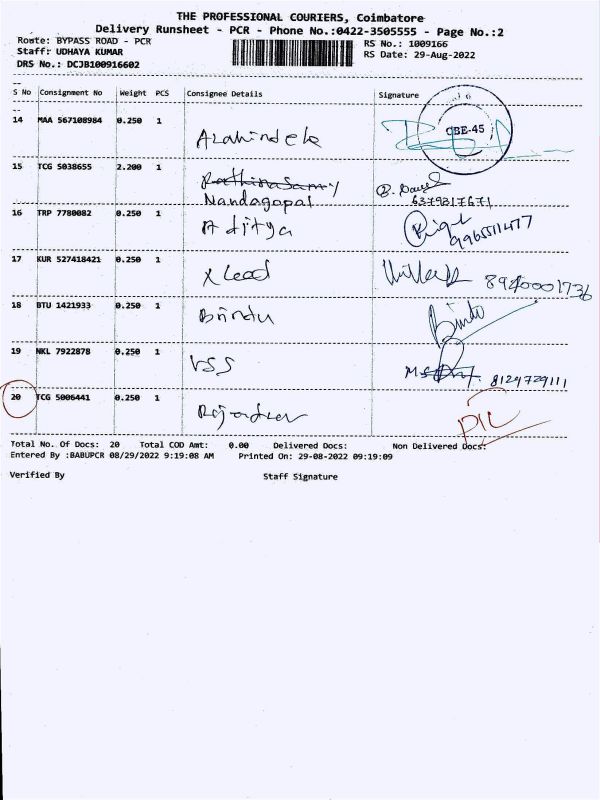 THE PROFESSIONAL COURIERS, Coimbatore
Delivery Runsheet - PCR - Phone No.:0422-3505555 - Page No.:2
Route: BYPASS ROAD - PCR
RS No.: 1009166
Staff: UDHAYA KUMAR
RS Date: 29-Aug-2022
DRS No.: DCJB100916602
S No Consignment No Weight PCS Consignee Details Signature
14 MAA 567108984 0.250 1
CBE-45
15 TCG 5038655 2.200 1 Rathinasamy
Nandagopal
6379317671
16 TRP 7780082 0.250 1 Aditya
9965511477
17 KUR 527418421 0.250 1 X Lead
8940001736
18 BTU 1421933 0.250 1 Brindu Bindo
19 NKL 7922878 0.250 1 VSS
8124729111
20 TCG 5006441 0.250 1
Total No. Of Docs: 20 Total COD Amt: 0.00 Delivered Docs: Non Delivered Docs:
Entered By :BABUPCR 08/29/2022 9:19:08 AM Printed On: 29-08-2022 09:19:09
Verified By Staff Signature